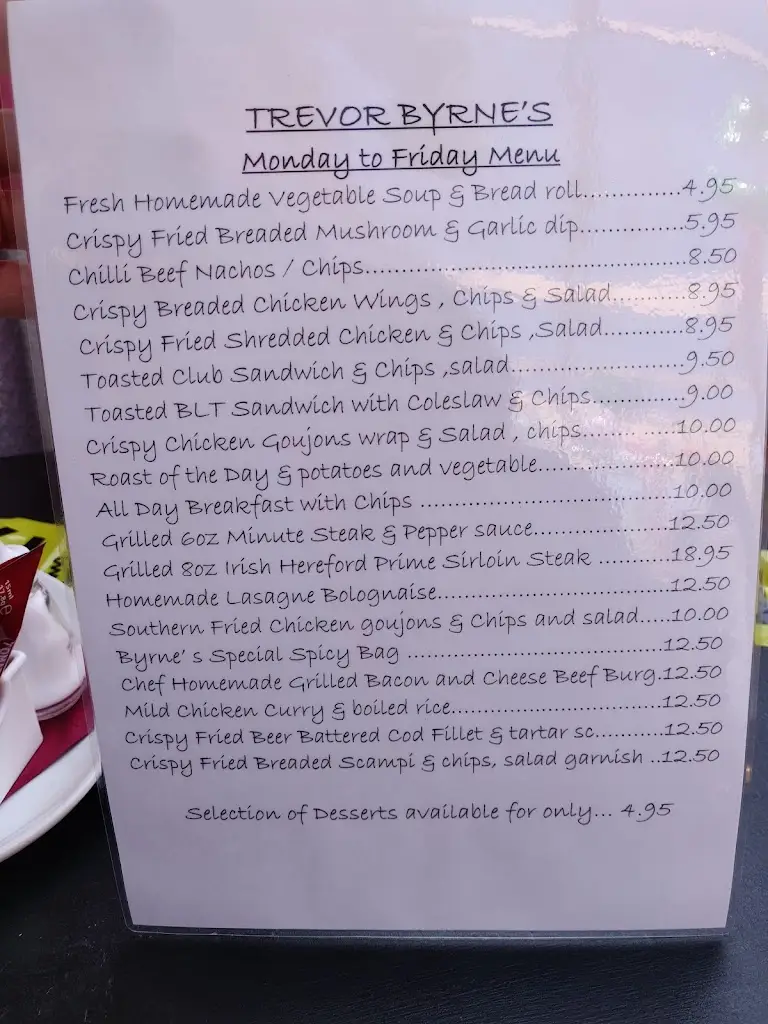 TREVOR BYRNE'S
Monday to Friday Menu
Fresh Homemade Vegetable Soup & Bread roll..............4.95
Crispy Fried Breaded Mushroom & Garlic dip...............5.95
Chilli Beef Nachos / Chips...............................................8.50
Crispy Breaded Chicken Wings , Chips & Salad..........8.95
Crispy Fried Shredded Chicken & Chips ,Salad...........8.95
Toasted Club Sandwich & Chips ,salad.........................9.50
Toasted BLT Sandwich with Coleslaw & Chips.............9.00
Crispy Chicken Goujons wrap & Salad , chips..............10.00
Roast of the Day & potatoes and vegetable....................10.00
All Day Breakfast with Chips .....................................10.00
Grilled 6oz Minute Steak & Pepper sauce....................12.50
Grilled 8oz Irish Hereford Prime Sirloin Steak ..........18.95
Homemade Lasagne Bolognaise..................................12.50
Southern Fried Chicken goujons & Chips and salad.....10.00
Byrne's Special Spicy Bag .......................................12.50
Chef Homemade Grilled Bacon and Cheese Beef Burg.12.50
Mild Chicken Curry & boiled rice.................................12.50
Crispy Fried Beer Battered Cod Fillet & tartar sc...........12.50
Crispy Fried Breaded Scampi & chips, salad garnish ..12.50
Selection of Desserts available for only... 4.95
15ml